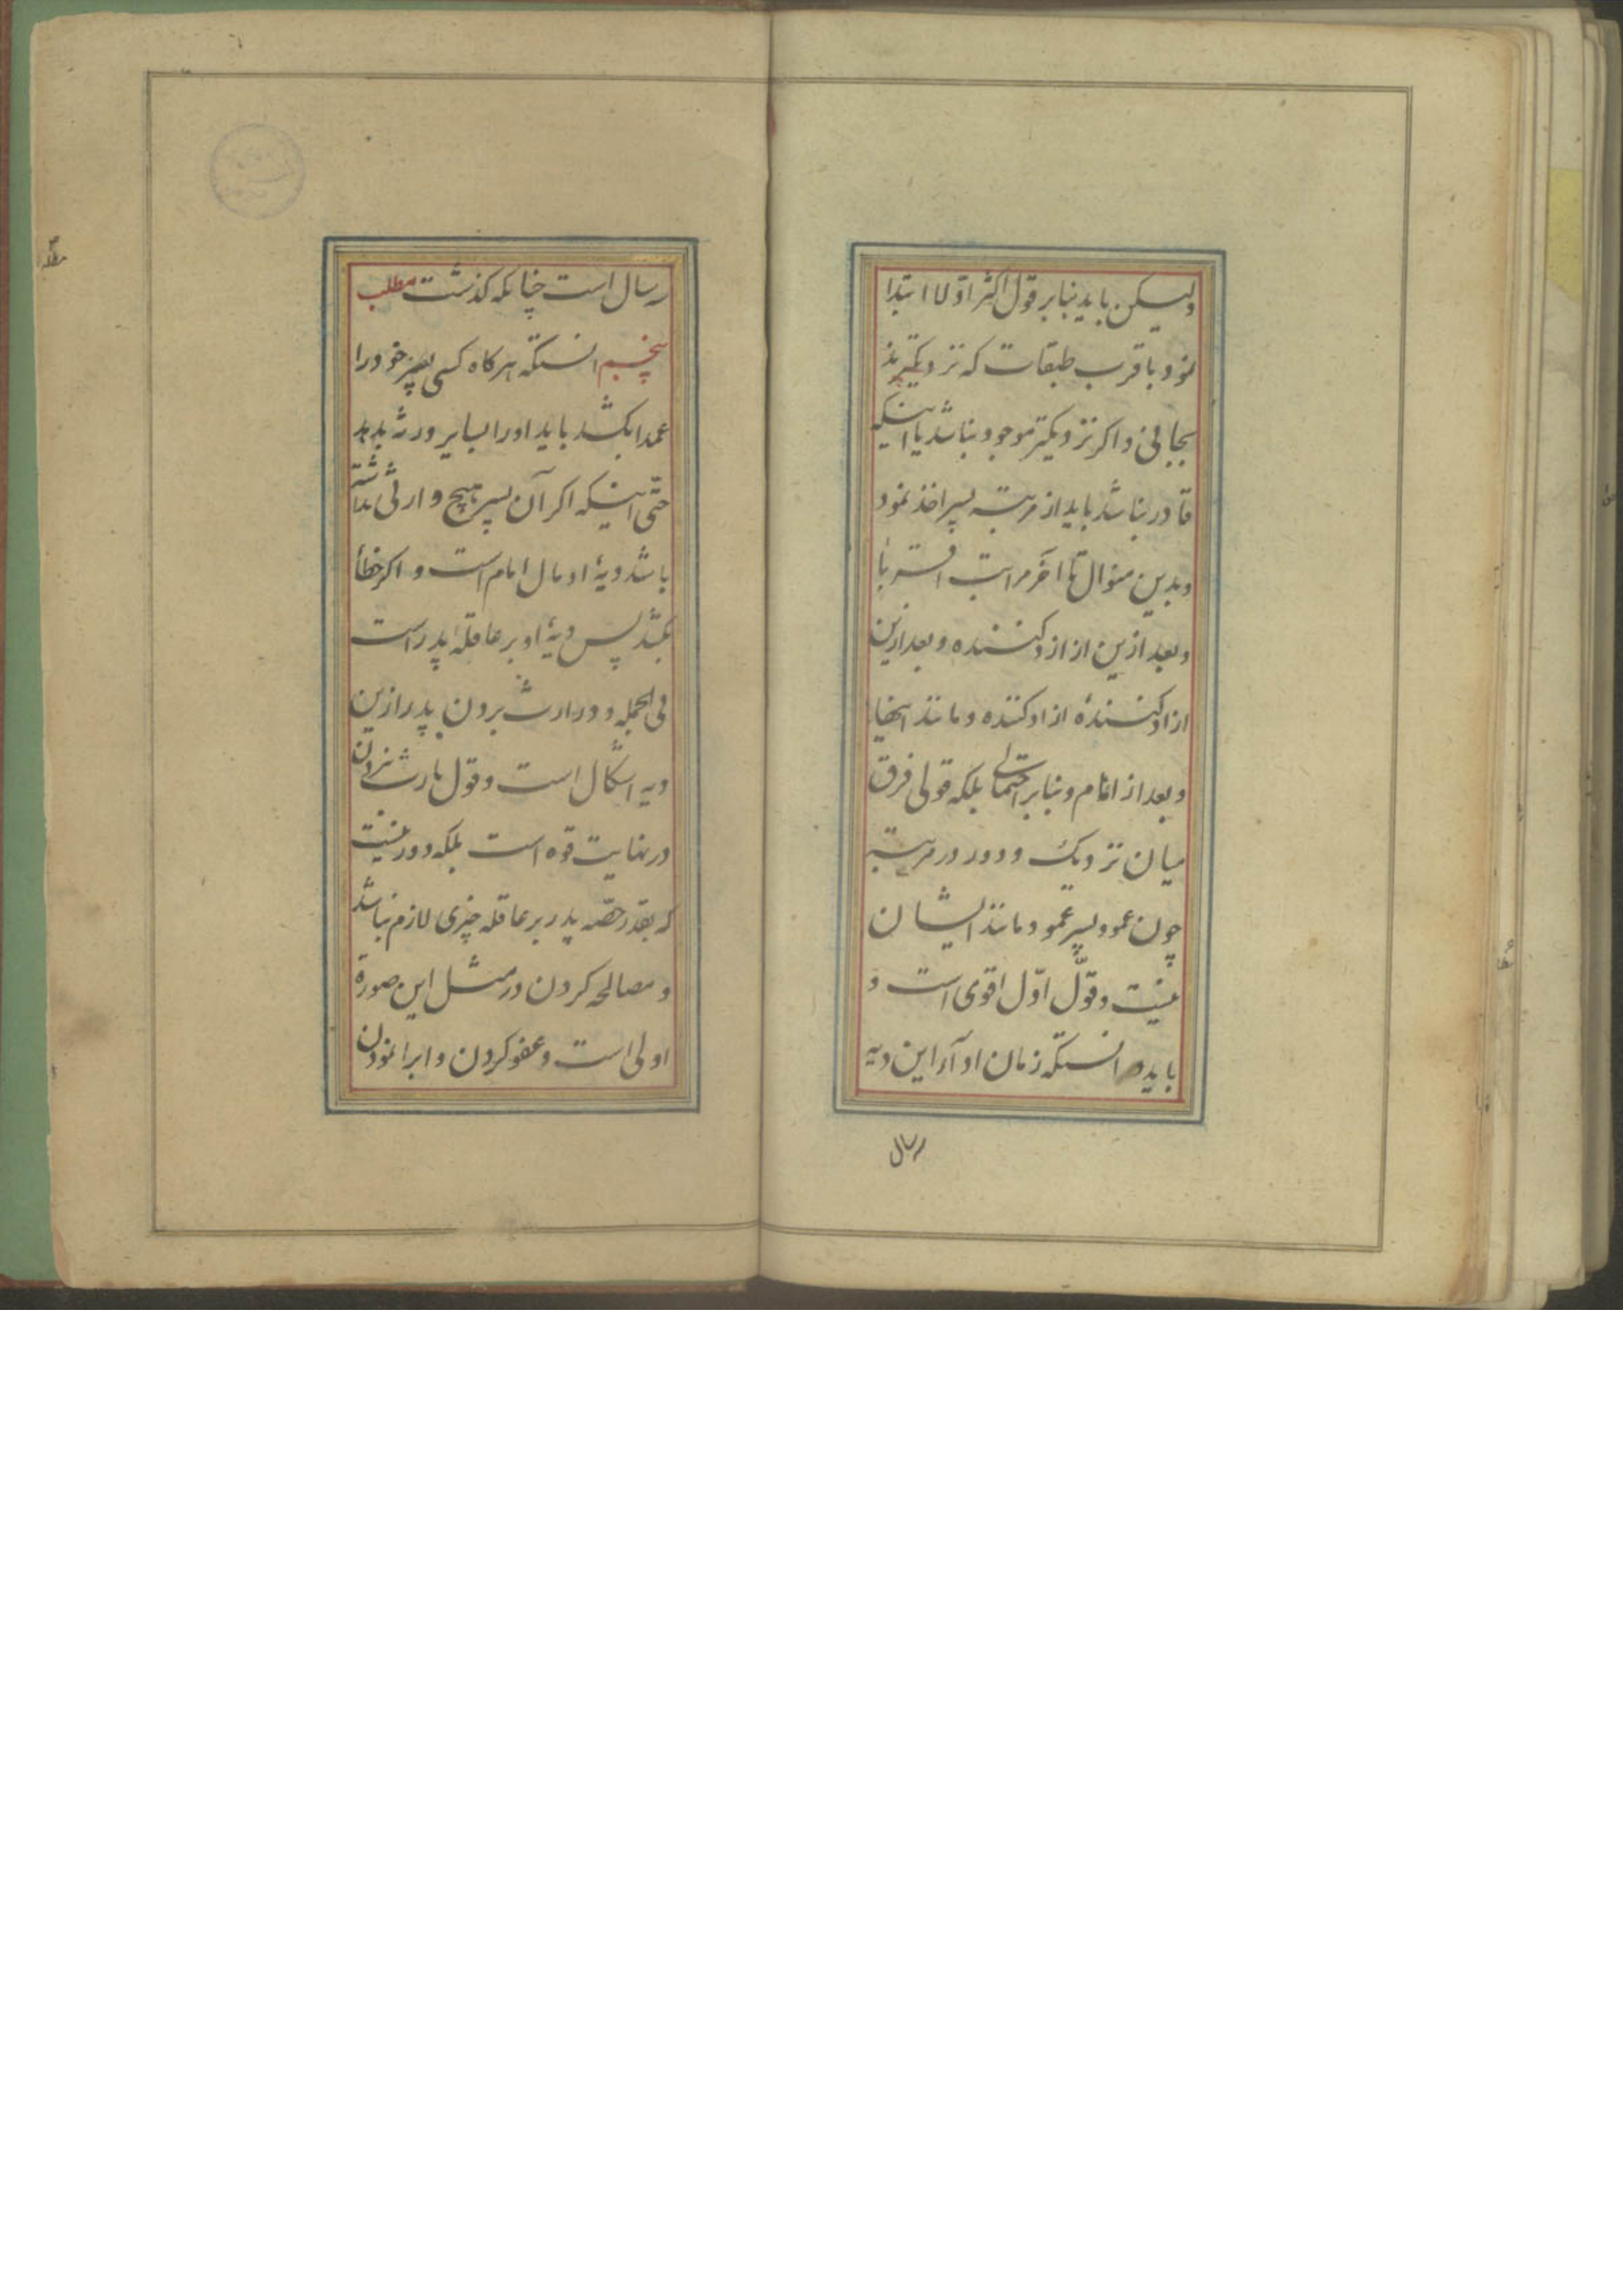 ولیکن باید بنابر قول اکثر اوّلا ابتدا
نمود باقرب طبقات که نزدیکترند
بجانی و اکر نزدیکتر موجود نباشد یا اینکه
قادر نباشد باید از مرتبه پسر اخذ نمود
و بدین منوال تا اخر مراتب اقربا
و بعد ازین از ازادکننده و بعد ازین
ازادکنندهٔ ازادکننده و مانند اینها
و بعد از امام و بنابر احتمالی بلکه قولی فرق
میان نزدیک و دور در مرتبه
چون عمو و پسر عمو و مانند ایشان
نیست و قول اوّل اقوی است و
باید دانستکه زمان ادآء این دیه
رسال
رسال است چنانکه کذشت مطلب
پنجم انستکه هرکاه کسی پسر خود را
عمدا بکشد باید او را بسایر ورثه بدهد
حتّی اینکه اکر آن پسر هیچ وارثی نداشته
باشد دیهٔ او مال امام است و اکر خطأ
بکشد پس دیهٔ او بر عاقلهٔ پدر است
فی الجمله و در ارث بردن پدر ازین
دیه اشکال است و قول بارث نبردن
در نهایت قوه است بلکه دور نیست
که بقدر حصّه پدر بر عاقله چیزی لازم نباشد
و مصالحه کردن در مثل این صورة
اولی است و عفو کردن و ابرا نمودن